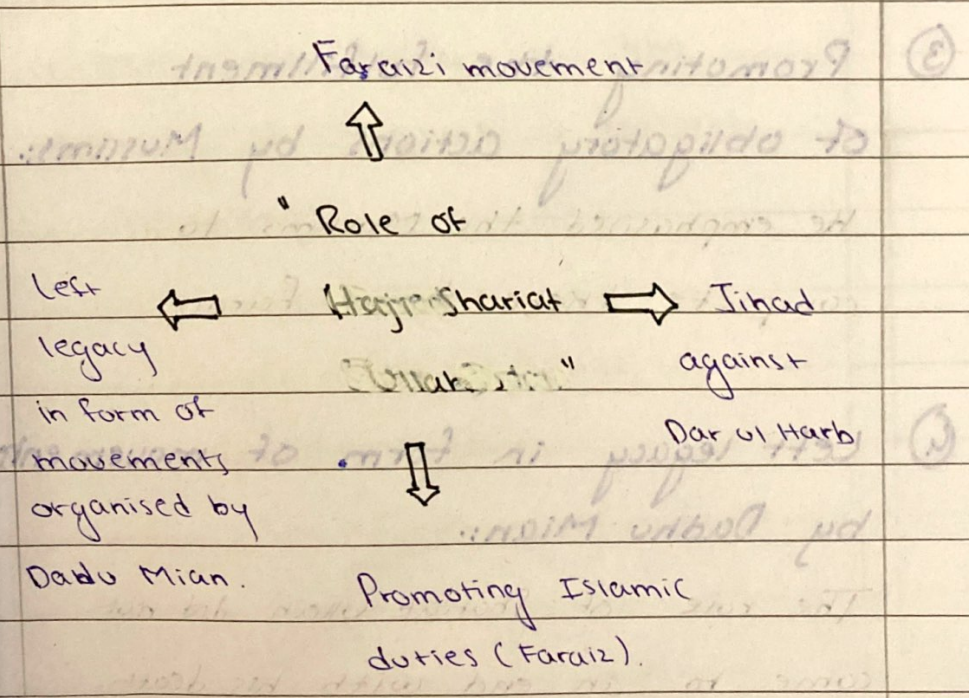 Faraizi movement
" Role of
Haji Shariat
"
Left
legacy
in form of
movements
organised by
Dadu Mian.
Jihad
against
Dar ul Harb
Promoting Islamic
duties (Faraiz).